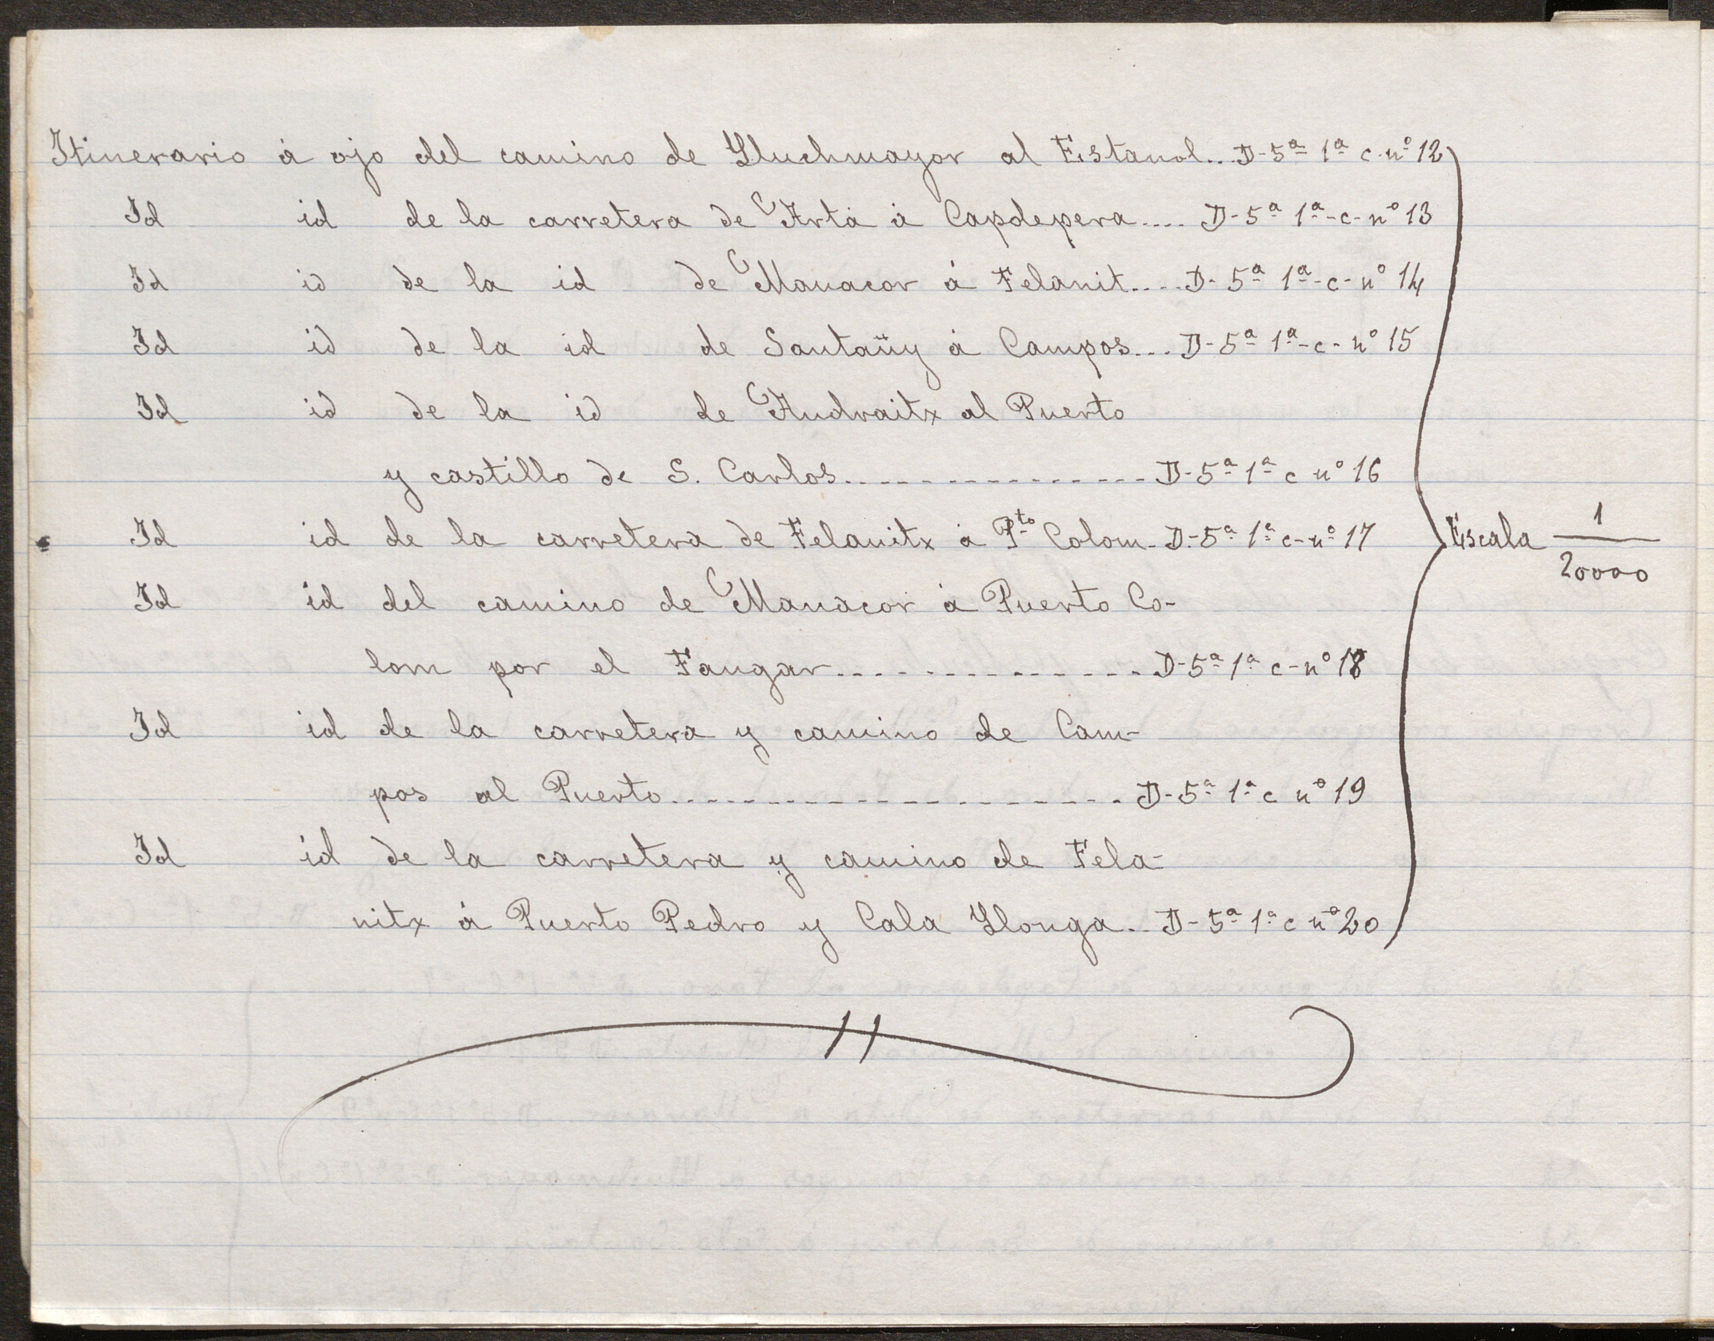 Itinerario á ojo del camino de Lluchmayor al Estanol... D-5ª 1ª c-nº 12
Id id de la carretera de Artá á Capdepera.... D-5ª 1ª-c-nº 13
Id id de la id de Manacor á Felanit.... D-5ª 1ª-c-nº 14
Id id de la id de Santañy á Campos... D-5ª 1ª-c-nº 15
Id id de la id de Andraitx al Puerto
y castillo de S. Carlos................ D-5ª 1ª c nº 16
Id id de la carretera de Felanitx á Pto Colom- D-5ª 1ª c-nº 17
Escala 1/20000
Id id del camino de Manacor á Puerto Co-
lom por el Fangar.............. D-5ª 1ª c-nº 18
Id id de la carretera y camino de Cam-
pos al Puerto.................... D-5ª 1ª c nº 19
Id id de la carretera y camino de Fela-
nitx á Puerto Pedro y Cala Llonga.. D-5ª 1ª c nº 20